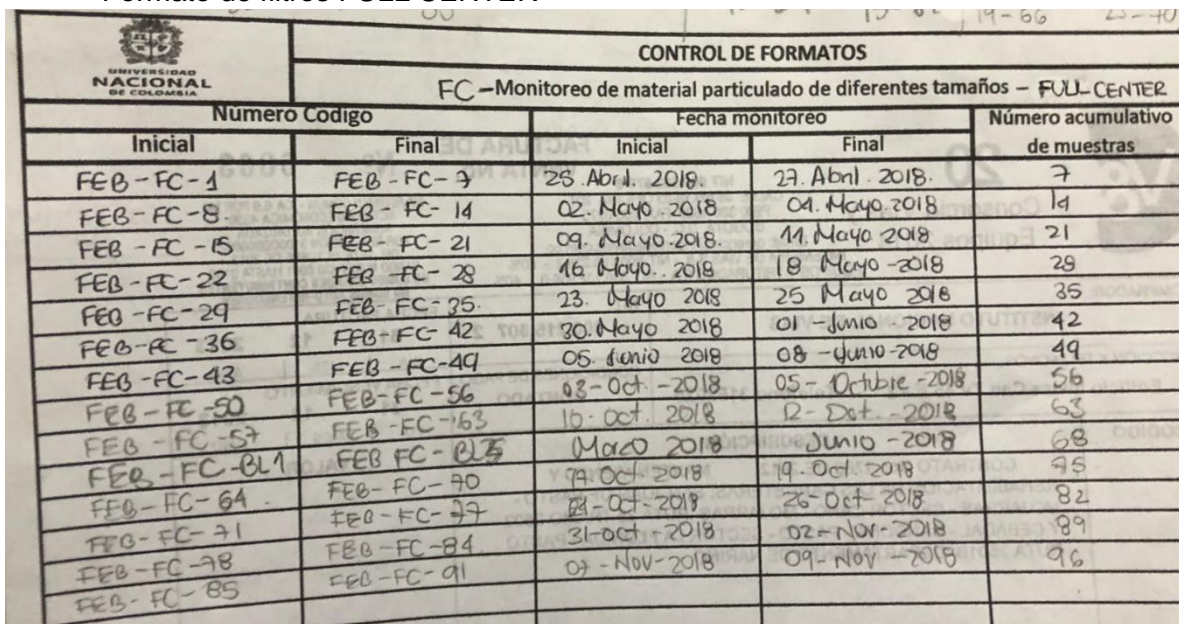 UNIVERSIDAD
NACIONAL
DE COLOMBIA
CONTROL DE FORMATOS
FC – Monitoreo de material particulado de diferentes tamaños – FULL CENTER
Número Codigo Fecha monitoreo Número acumulativo de muestras
Inicial Final Inicial Final
FEB-FC-1 FEB-FC-7 25.Abril.2018 27.Abril.2018. 7
FEB-FC-8 FEB-FC-14 02.Mayo.2018 04.Mayo.2018 14
FEB-FC-15 FEB-FC-21 09.Mayo.2018. 11.Mayo 2018 21
FEB-FC-22 FEB-FC-28 16.Mayo.2018 18 Mayo-2018 28
FEB-FC-29 FEB-FC-35. 23.Mayo 2018 25 Mayo 2018 35
FEB-FC-36 FEB-FC-42 30.Mayo 2018 01-Junio-2018 42
FEB-FC-43 FEB-FC-49 05.Junio 2018 08-Junio-2018 49
FEB-FC-50 FEB-FC-56 03-Oct-2018 05-Octubre-2018 56
FEB-FC-57 FEB-FC-63 10-Oct.2018 12-Oct.-2018 63
FEB-FC-BL1 FEB FC-BL5 2018 Junio-2018 68
FEB-FC-64 FEB-FC-70 Oct-2018 Oct-2018 75
FEB-FC-71 FEB-FC-77 24-Oct-2018 26-Oct-2018 82
FEB-FC-78 FEB-FC-84 31-Oct-2018 02-Nov-2018 89
FEB-FC-85 FEB-FC-91 07-Nov-2018 09-Nov-2018 96